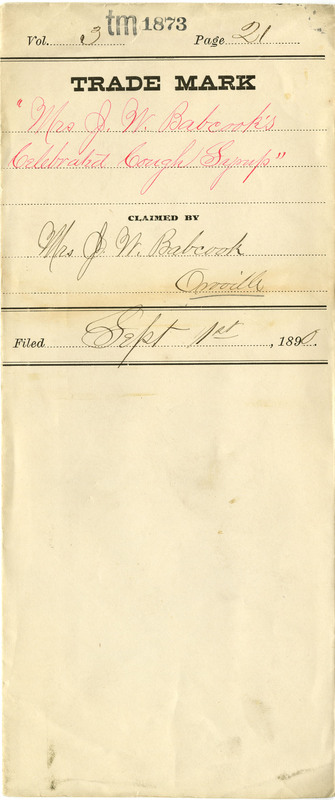 tm 1873
Vol. 3 Page 21
TRADE MARK
"Mrs J. W. Babcook's
Celebrated Cough Syrup"
CLAIMED BY
Mrs J. W. Babcook
Orville
Filed Sept 1st, 1890.